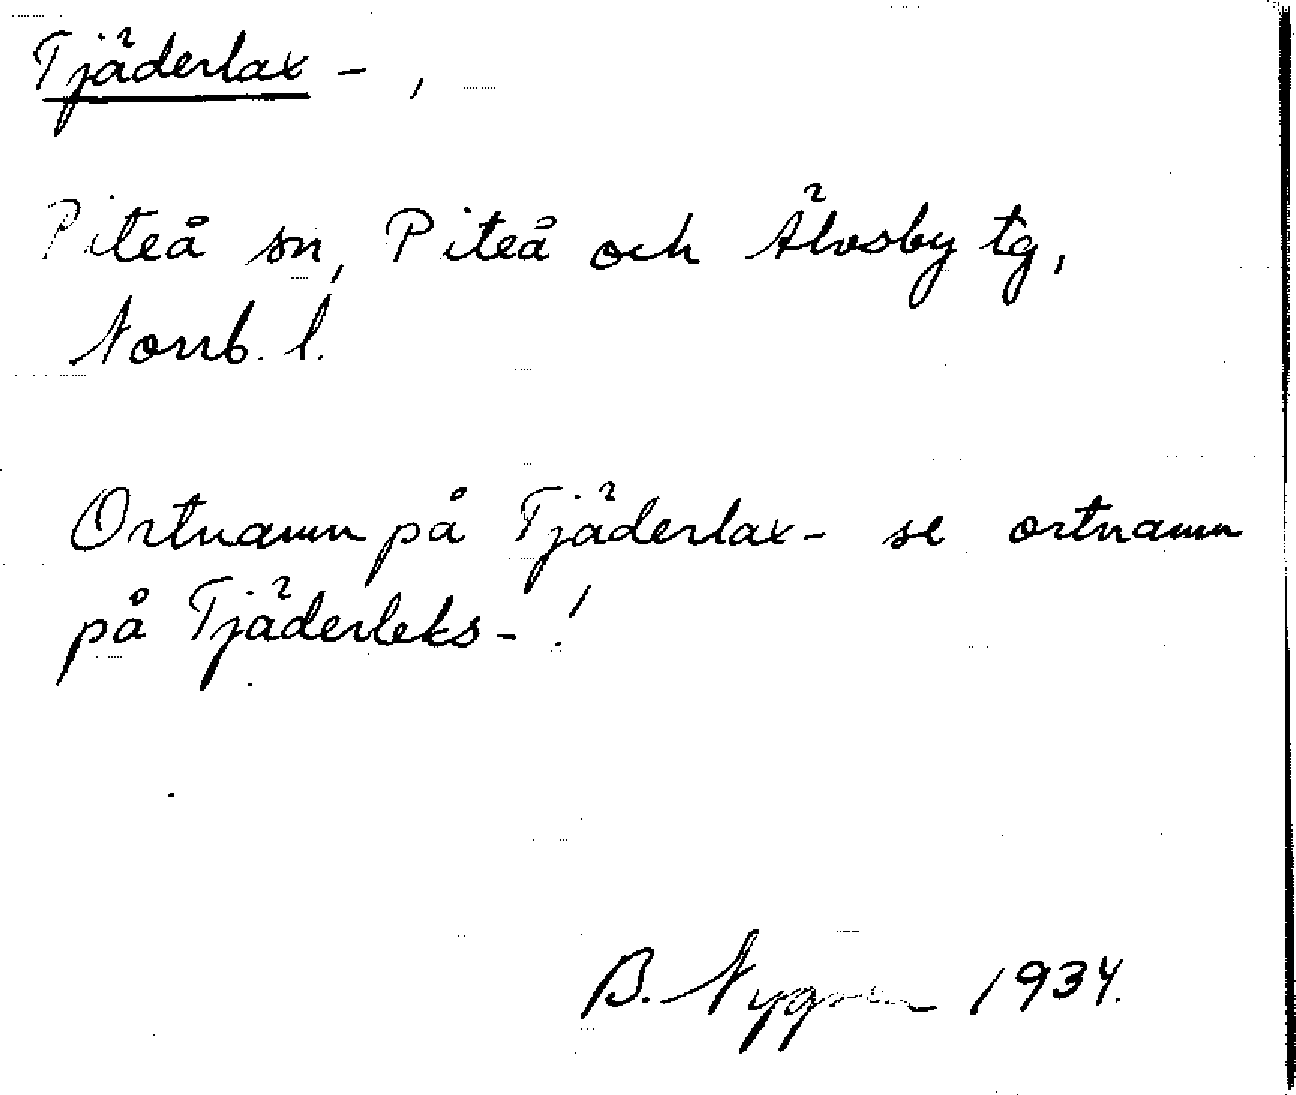 Tjäderlax - ,
Piteå sn, Piteå och Älvsby tg,
Norrb. l.
Ortnamn på Tjäderlax- se ortnamn
på Tjäderleks- !
B. Nygren 1934.